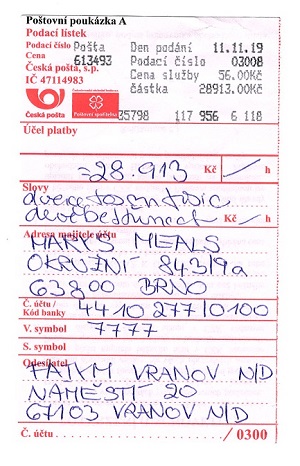 Poštovní poukázka A
Podací lístek
Podací číslo Pošta Den podání 11.11.19
Cena 613493 Podací číslo 03008
Česká pošta, s.p. Cena služby 56.00Kč
IČ 47114983 částka 28913.00Kč
Česká pošta 35798 117 956 6 118
Účel platby
=28.913 Kč / h
Slovy
dvacetosmtisíc
devětsettřináct Kč / h
Adresa majitele účtu
MARY'S MEALS
OKRUŽNÍ 843/9a
63800 BRNO
Č. účtu / Kód banky 4410277/0100
V. symbol 7777
S. symbol
Odesílatel
FAJKM VRANOV N/D
NAMĚSTÍ 20
67103 VRANOV N/D
Č. účtu / 0300